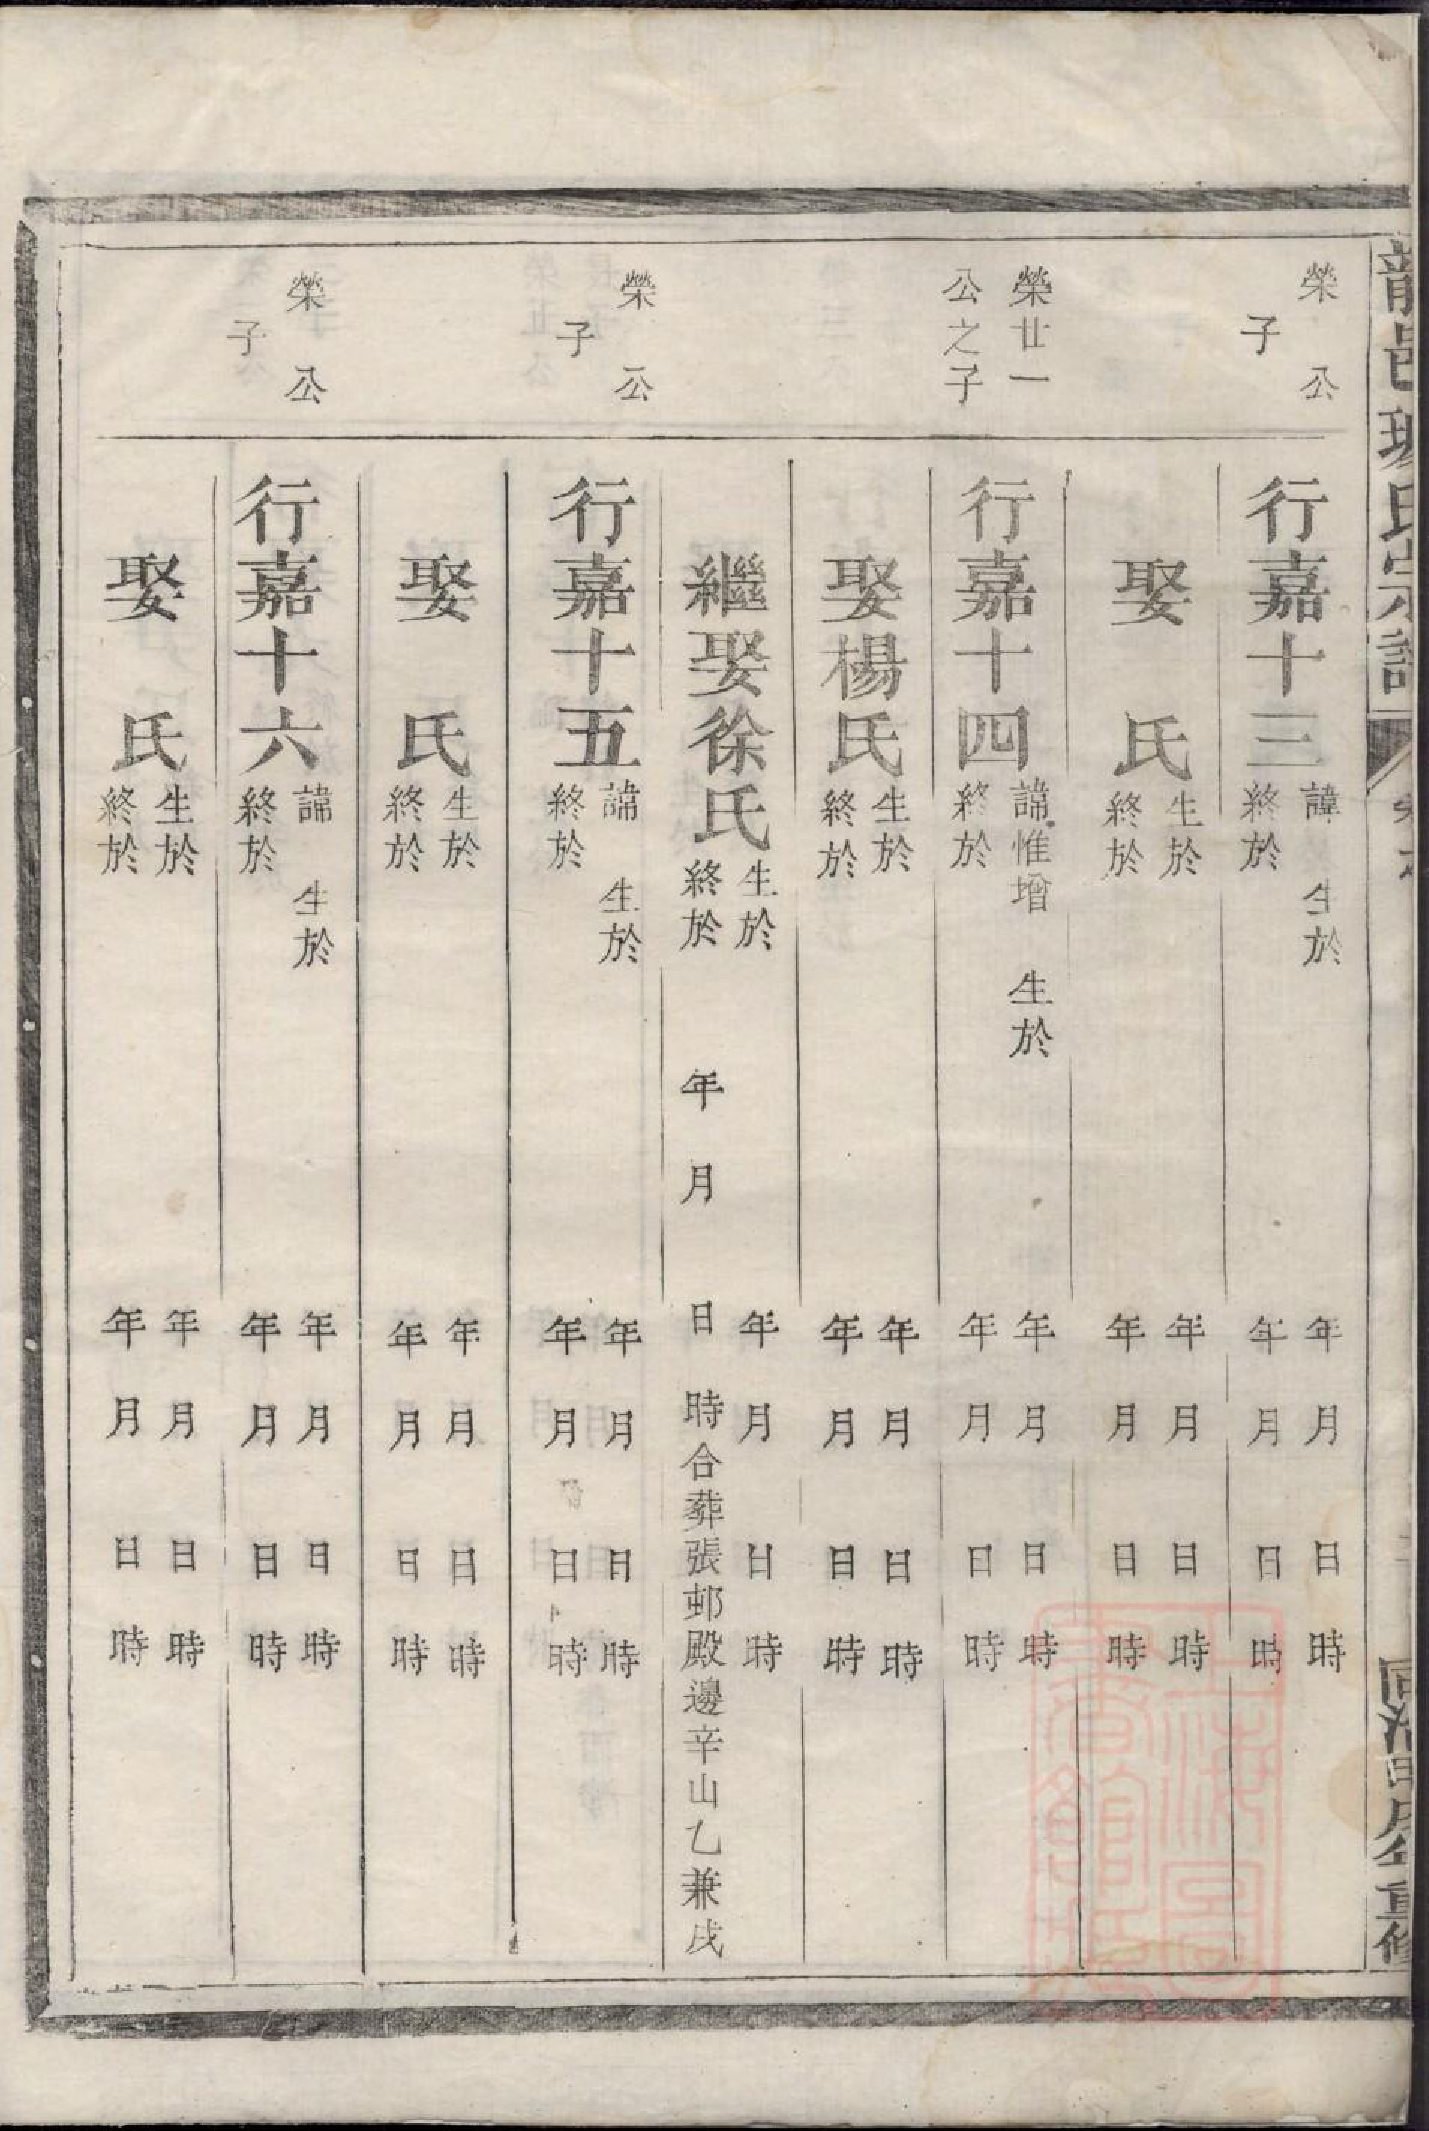 榮　公
子
行嘉十三
諱　生於　年　月　日　時
終於　年　月　日　時
娶　氏
生於　年　月　日　時
終於　年　月　日　時
榮廿一
公之子
行嘉十四
諱惟增　生於　年　月　日　時
終於　年　月　日　時
娶楊氏
生於　年　月　日　時
終於　年　月　日　時
繼娶徐氏
生於　年　月　日　時
終於　年　月　日　時合葬張邨殿邊辛山乙兼戌
榮　公
子
行嘉十五
諱　生於　年　月　日　時
終於　年　月　日　時
娶　氏
生於　年　月　日　時
終於　年　月　日　時
榮　公
子
行嘉十六
諱　生於　年　月　日　時
終於　年　月　日　時
娶　氏
生於　年　月　日　時
終於　年　月　日　時